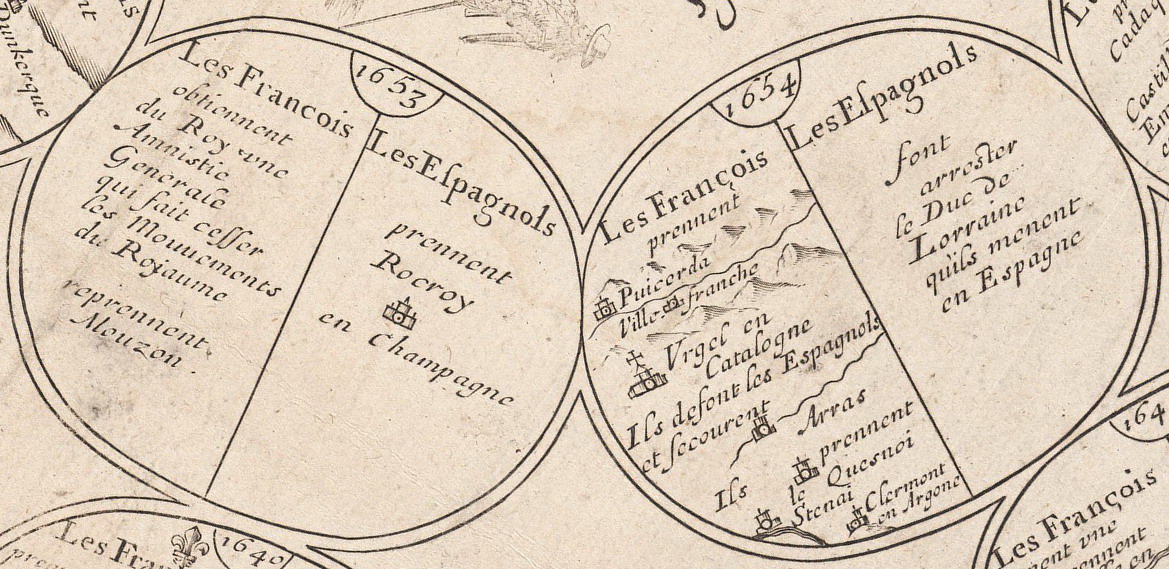 Dunkerque
1653
Les Francois
obtiennent
du Roy vne
Amnistie
Generale
qui fait cesser
les Mouuements
du Royaume
reprennent
Mouzon.
Les Eſpagnols
prennent
Rocroy
en Champagne
1654
Les François
prennent
Puicorda
Ville franche
Vrgel en
Catalogne
Ils defont les Espagnols
et secourent
Arras
Ils prennent
le Quesnoi
Stenai
Clermont
en Argone
Les Eſpagnols
font
arrester
le Duc de
Lorraine
qu'ils menent
en Espagne
1640
Les Fran
164
Les François